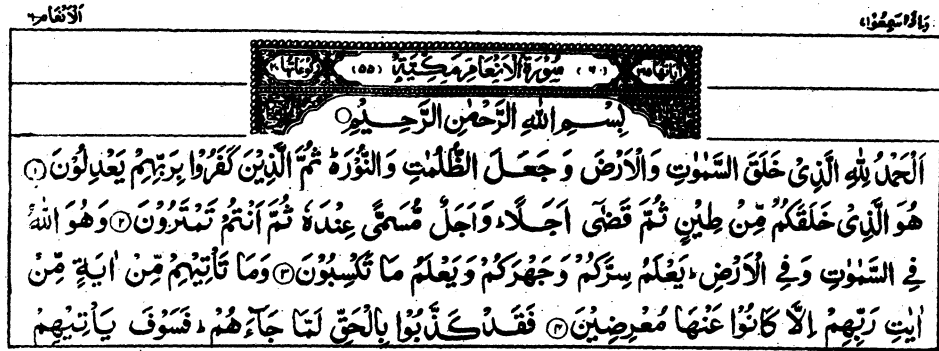 واذا سمعوا ۷ الانعام ۶
اٰیاتها ۱۶۵ (۶) سُوْرَةُ الْاَنْعَامِ مَكِّيَّةٌ (۵۵) رکوعاتها ۲۰
بِسْمِ اللّٰهِ الرَّحْمٰنِ الرَّحِيْمِ
اَلْحَمْدُ لِلّٰهِ الَّذِيْ خَلَقَ السَّمٰوٰتِ وَالْاَرْضَ وَجَعَلَ الظُّلُمٰتِ وَالنُّوْرَ۬ؕ ثُمَّ الَّذِيْنَ كَفَرُوْا بِرَبِّهِمْ يَعْدِلُوْنَ ۱
هُوَ الَّذِيْ خَلَقَكُمْ مِّنْ طِيْنٍ ثُمَّ قَضٰۤى اَجَلًا ؕ وَاَجَلٌ مُّسَمًّى عِنْدَهٗ ثُمَّ اَنْتُمْ تَمْتَرُوْنَ ۲ وَهُوَ اللّٰهُ
فِي السَّمٰوٰتِ وَفِي الْاَرْضِ ؕ يَعْلَمُ سِرَّكُمْ وَجَهْرَكُمْ وَيَعْلَمُ مَا تَكْسِبُوْنَ ۳ وَمَا تَاْتِيْهِمْ مِّنْ اٰيَةٍ مِّنْ
اٰيٰتِ رَبِّهِمْ اِلَّا كَانُوْا عَنْهَا مُعْرِضِيْنَ ۴ فَقَدْ كَذَّبُوْا بِالْحَقِّ لَمَّا جَآءَهُمْ ؕ فَسَوْفَ يَاْتِيْهِمْ